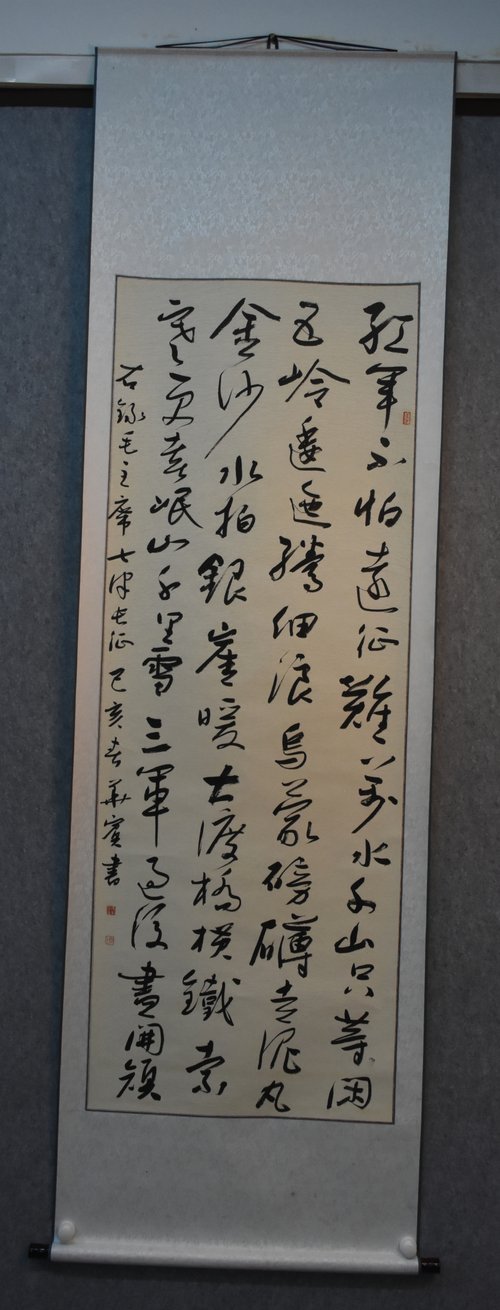 紅軍不怕遠征難萬水千山只等閑
五岭逶迤騰細浪烏蒙磅礴走泥丸
金沙水拍銀崖暖大渡橋橫鐵索
寒更喜岷山千里雪三軍過後盡開顏
右錄毛主席七律長征己亥春華賓書